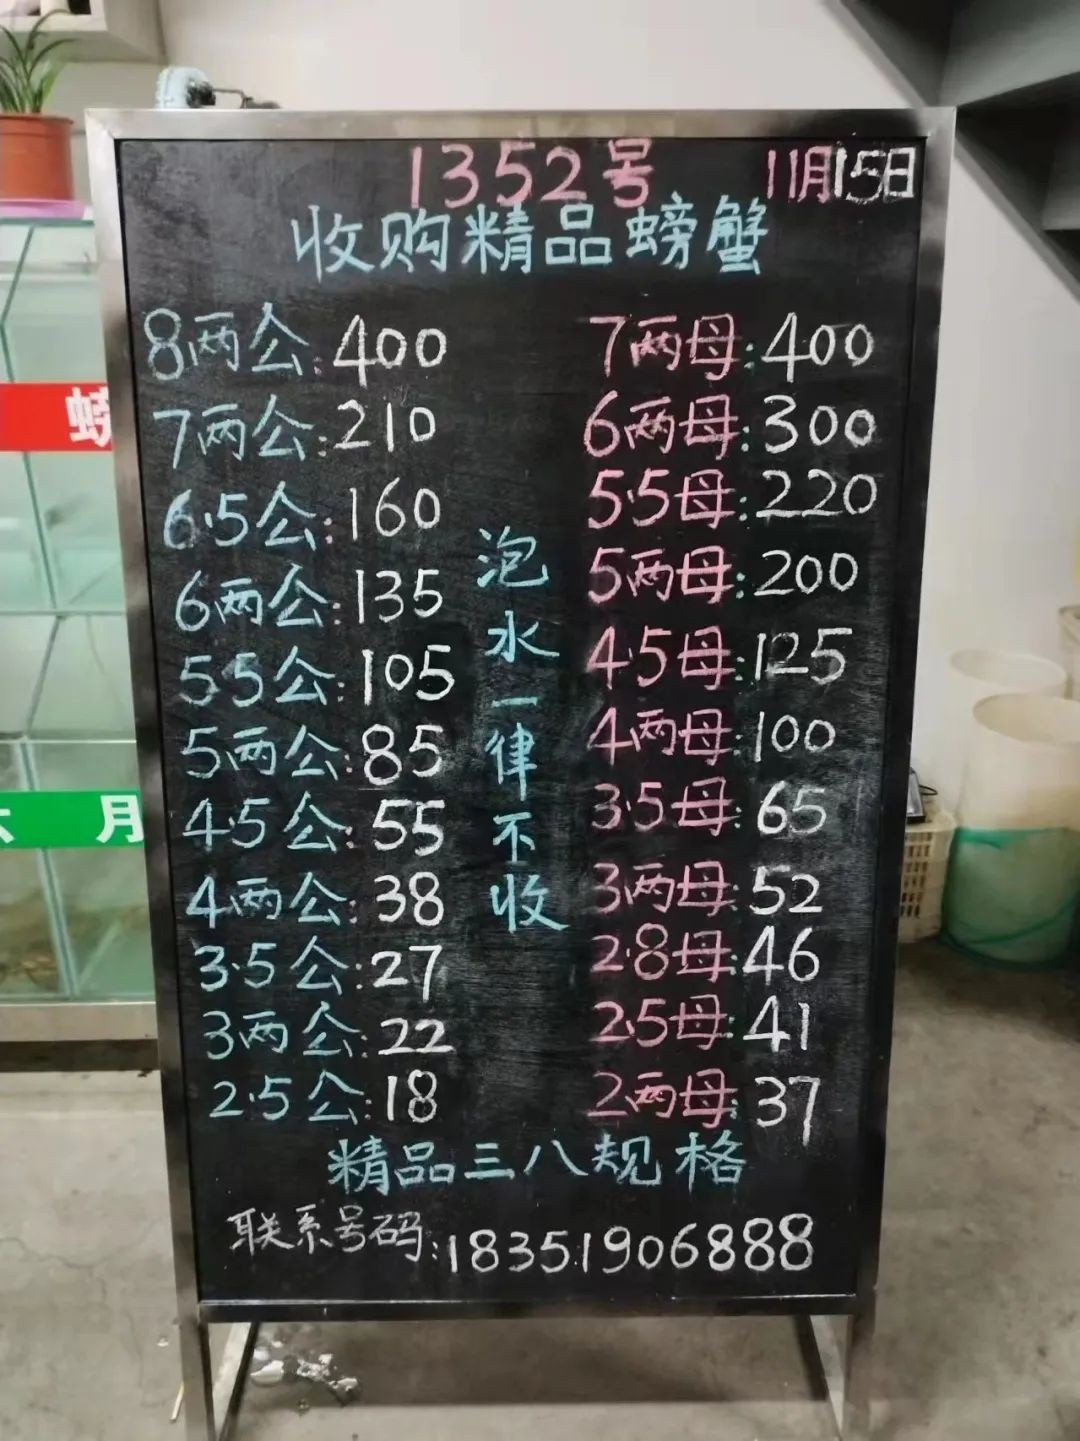 1352号 11月15日
收购精品螃蟹
8两公:400 7两母:400
7两公:210 6两母:300
6.5公:160 5.5母:220
6两公:135 5两母:200
5.5公:105 4.5母:125
5两公:85 4两母:100
4.5公:55 3.5母:65
4两公:38 3两母:52
3.5公:27 2.8母:46
3两公:22 2.5母:41
2.5公:18 2两母:37
泡水一律不收
精品三八规格
联系号码:18351906888
月